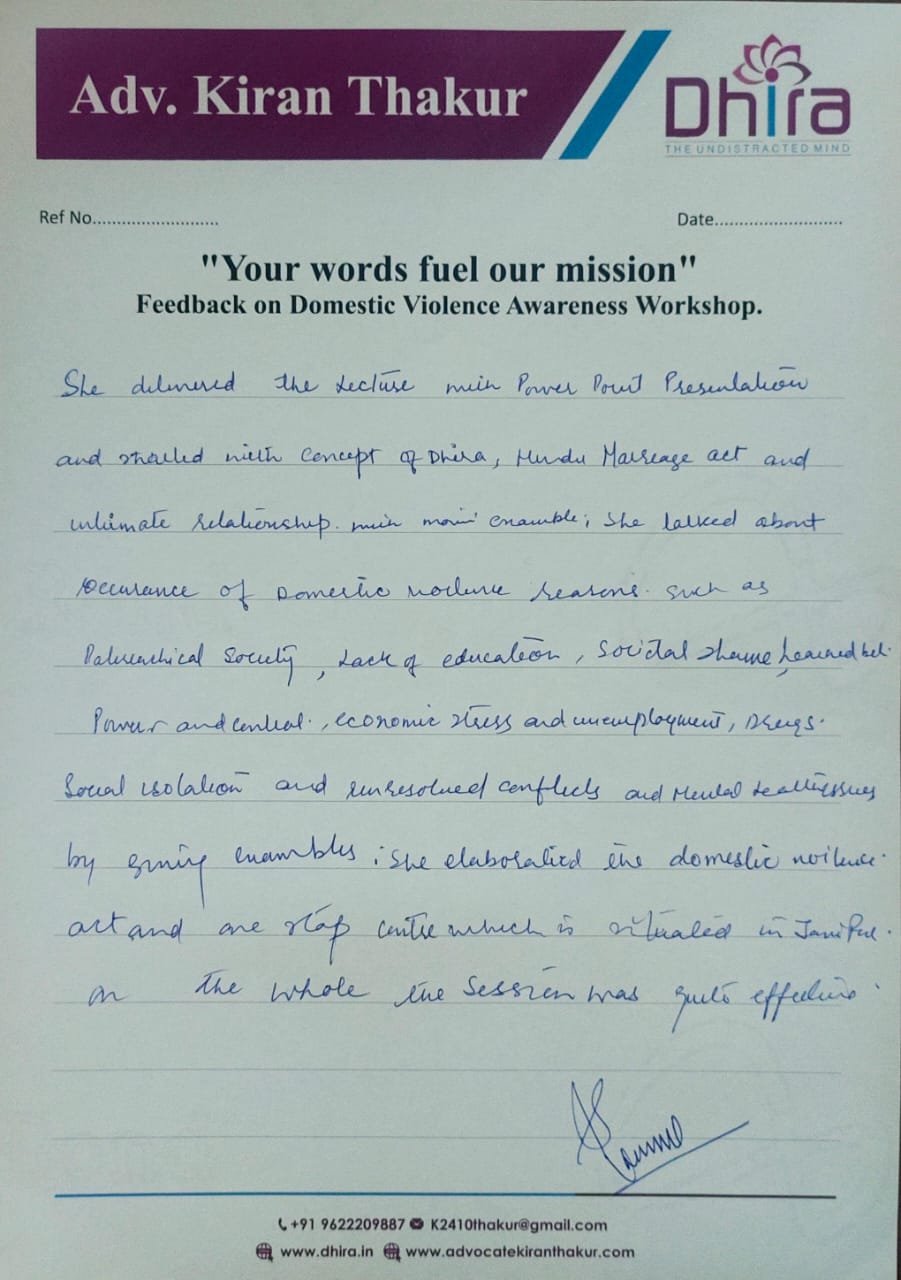 Adv. Kiran Thakur
Dhira
THE UNDISTRACTED MIND
Ref No..........................
Date..........................
"Your words fuel our mission"
Feedback on Domestic Violence Awareness Workshop.
She delivered the Lecture with Power Point Presentation
and started with Concept of Dhira, Hindu Marreage act and
intimate relationship. with enamble; She talked about
Occurance of Domestic violence reasons. such as
Patriarchical Society, Lack of education, Societal shame, Learned beh.
Power and control., economic stress and unemployment, Drugs.
Social isolation and unresolved conflicts and Mental Health issues
by giving enambles; She elaborated the domestic voilence.
act and one stop centre which is situated in
on the whole the session was quite effective.
+91 9622209887 K2410thakur@gmail.com
www.dhira.in www.advocatekiranthakur.com